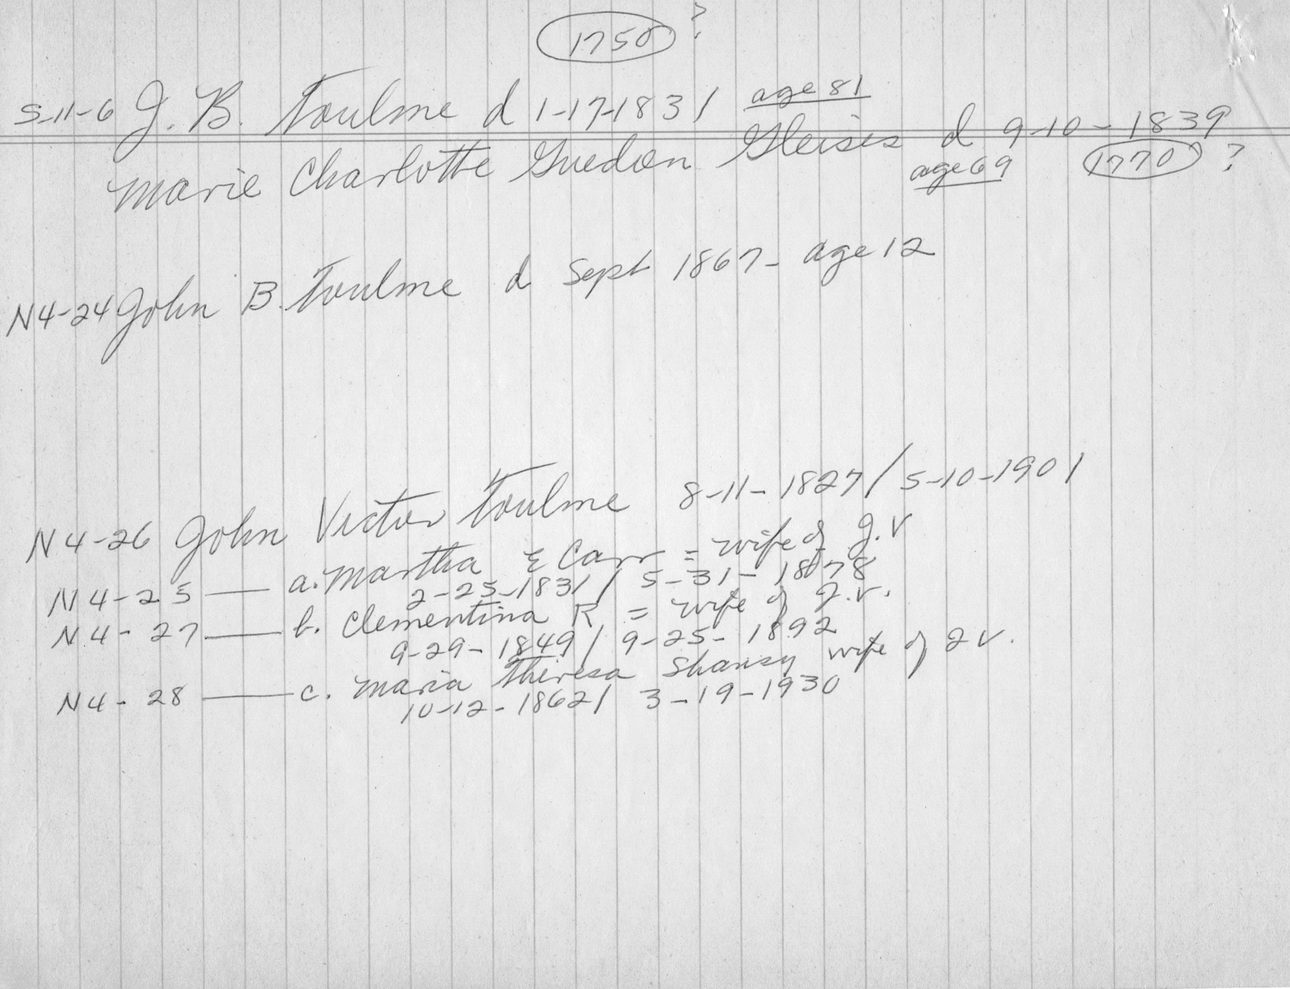 1750 ?
S-11-6 J. B. Toulme d 1-17-1831 age 81
Marie Charlotte Guedon Gleises d 9-10-1839
age 69 1770 ?
N4-24 John B. Toulme d Sept 1867- age 12
N4-26 John Victor Toulme 8-11-1827/5-10-1901
N4-25 — a. Martha E Carr = wife of J.V
2-25-1831/ 5-31-1878
N4-27 — b. Clementina R = wife of J.V.
9-29-1849/ 9-25-1892
N4-28 — c. Maria Theresa wife of J V.
10-12-1862/ 3-19-1930